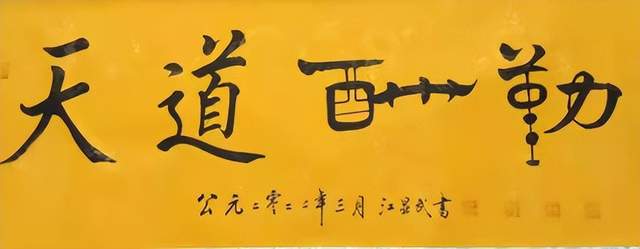 天道酬勤
公元二零二二年三月 江显武書